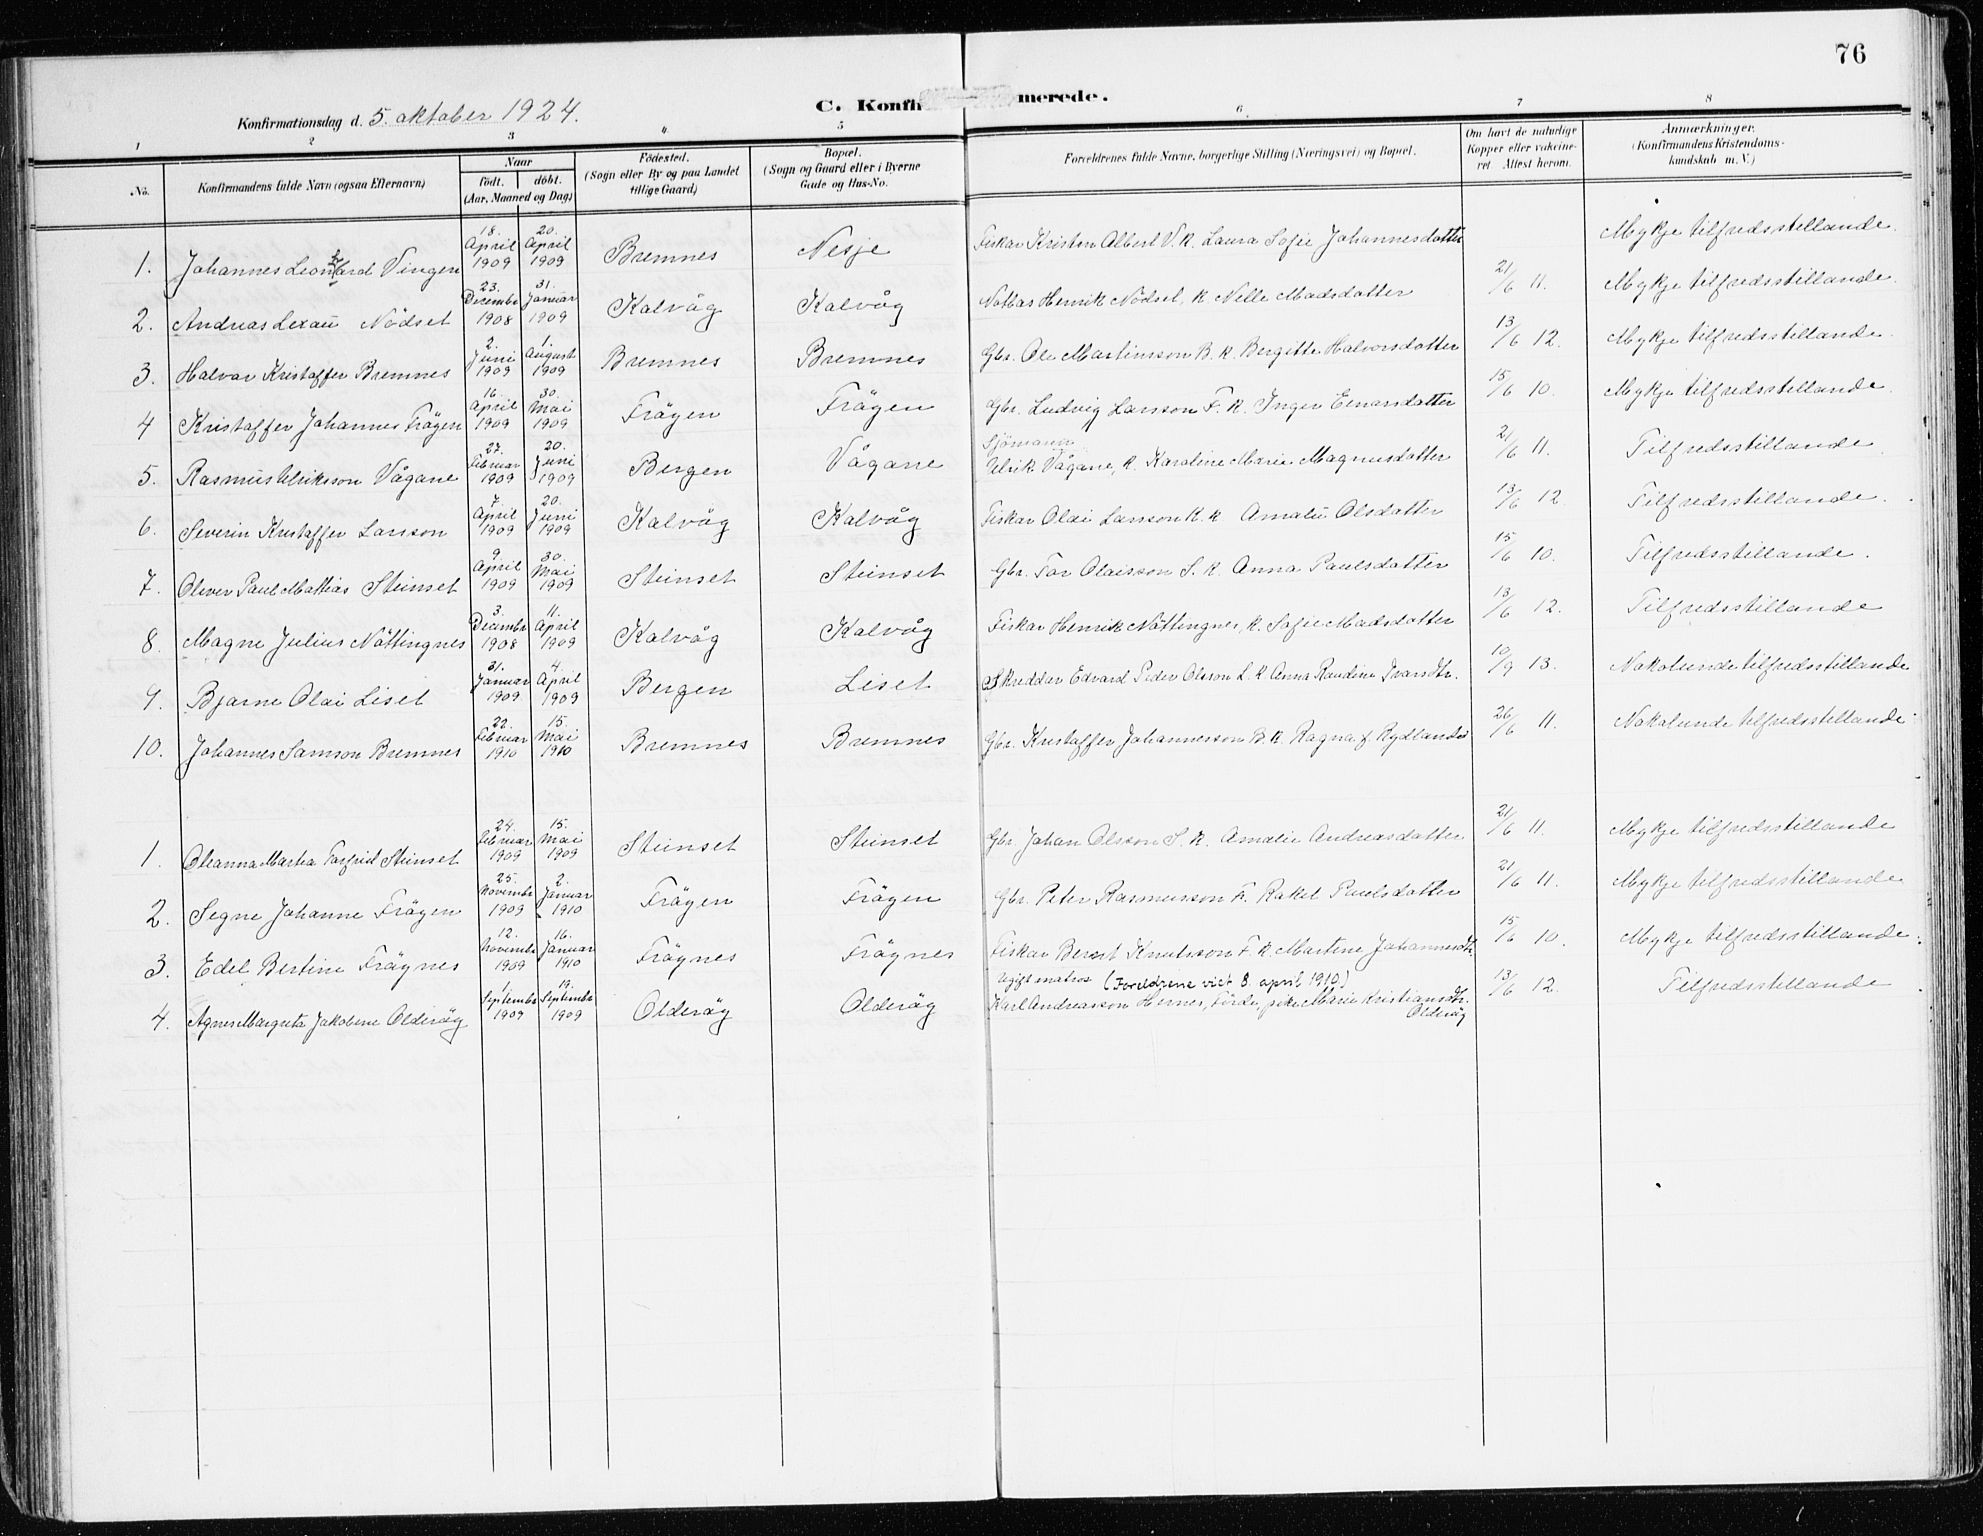 76
Konfirmationsdag d. 5. oktober 1924.
C. Konfirmerede.
1 2 3 4 5 6. 7 8
No. Konfirmandens fulde Navn (ogsaa Efternavn) Naar født. døbt. (Aar, Maaned og Dag) Födested. (Sogn eller By og paa Landet tillige Gaard) Bopæl. (Sogn og Gaard eller i Byerne Gade og Hus-No. Forældrenes fulde Navne, borgerlige Stilling (Næringsvei) og Bopæl. Om havt de naturlige Kopper eller vakcineret. Attest herom. Anmærkninger. (Konfirmandens Kristendomskundskab m. V.)
1. Johannes Leonhard Vingen 18. April 1909 20. April 1909 Bremnes Nesje Fiskar Kristen Albert V. k. Laura Sofie Johannesdatter Mykje tilfredsstillande.
2. Andreas Lexau Nödset 23. Decembr 1908 31. Januar 1909 Kalvåg Kalvåg Notbas Henrik Nödset, k. Nelle Madsdatter 21/6 11. Mykje tilfredsstillande.
3. Halvar Kristoffer Bremnes 2. Juni 1909 1. August 1909 Bremnes Bremnes Gbr. Ole Martinsson B. k. Bergitte Halvorsdatter 13/6 12. Mykje tilfredsstillande.
4 Kristoffer Johannes Frögen 16. April 1909 30. Mai 1909 Frögen Frögen Gbr. Ludvig Larsson F. k. Inger Einarsdatter 15/6 10. Mykje tilfredsstillande.
5. Rasmus Ulriksson Vågane 27. Februar 1909 20. Juni 1909 Bergen Vågane Sjömann Ulrik Vågane, k. Karoline Marie Magnusdatter 21/6 11. Tilfredsstillande
6. Severin Kristoffer Larsson 7. April 1909 20. Juni 1909 Kalvåg Kalvåg Fiskar Olai Larsson K. k. Amalie Olsdatter 13/6 12. Tilfredsstillande.
7. Oliver Paul Mattias Steinset 9. April 1909 30. Mai 1909 Steinset Steinset Gbr. Tor Olaisson S. k. Anna Paulsdatter 15/6 10. Tilfredsstillande.
8. Magne Julius Nöttingnes 3. Decembr 1908 11. April 1909 Kalvåg Kalvåg Fiskar Henrik Nöttingnes, k. Sofie Madsdatter 13/6 12. Tilfredsstillande
9. Bjarne Olai Liset 31. Januar 1909 4. April 1909 Bergen Liset Skreddar Edvard Peder Olsson L. k. Anna Raudine Ivarsdtr. 10/9 13. Nokolunde tilfredsstillande
10. Johannes Samson Bremnes 22. Februar 1910 15. Mai 1910 Bremnes Bremnes Gbr. Kristoffer Johannesson B. k. Ragna f. Rydland 26/6 11. Nokolunde tilfredsstillande.
1. Oleanna Marta Torfrid Steinset 24. Februar 1909 15. Mai 1909 Steinset Steinset Gbr. Johan Olsson S. k. Amalie Andreasdatter 21/6 11. Mykje tilfredsstillande
2. Segne Johanne Frögen 25. Novembr 1909 2. Januar 1910 Frögen Frögen Gbr. Peter Rasmusson F. Rakel Paulsdatter 21/6 11. Mykje tilfredsstillande
3. Edel Bertine Frögnes 12. Novembr 1909 16. Januar 1910 Frögnes Frögnes Fiskar Bernt Knutsson F. k. Martine Johannesdtr. 15/6 10. Mykje tilfredsstillande.
4. Agnes Margreta Jakobine Olderög 1. Septembr 1909 19. Septembr 1909 Olderög Olderög Ugift matros (Foreldrene viet 8. april 1910) Karl Andreasson Hornes, Förde, pike Marie Kristiansdtr. Olderög 13/6 12. Tilfredsstillande